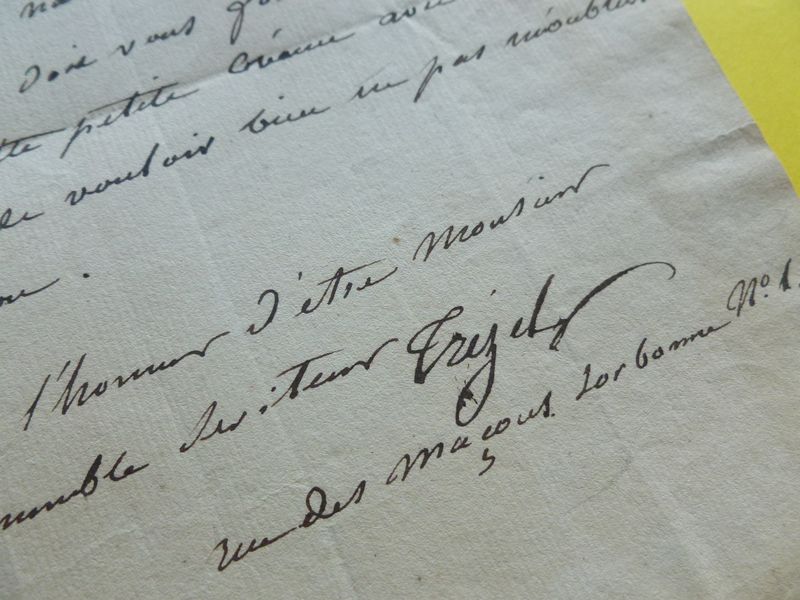 dois vous
petite créance avec
de vouloir bien ne pas m'oublier
l'honneur d'être Monsieur
humble serviteur Trézel
rue des Maçons Sorbonne N° 1.